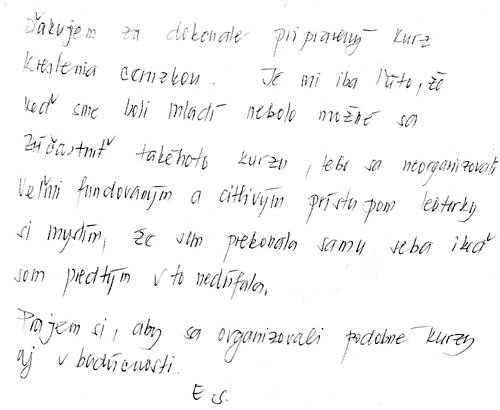 Ďakujem za dokonale pripravený kurz
kreslenia ceruzkou. Je mi iba ľúto, že
keď sme boli mladí nebolo možné sa
zúčastniť takéhoto kurzu, lebo sa neorganizovali
Veľmi fundovaným a citlivým prístupom lektorky
si myslím, že som prekonala samu seba i keď
som predtým v to nedúfala.
Prajem si, aby sa organizovali podobné kurzy
aj v budúcnosti.
E.S.